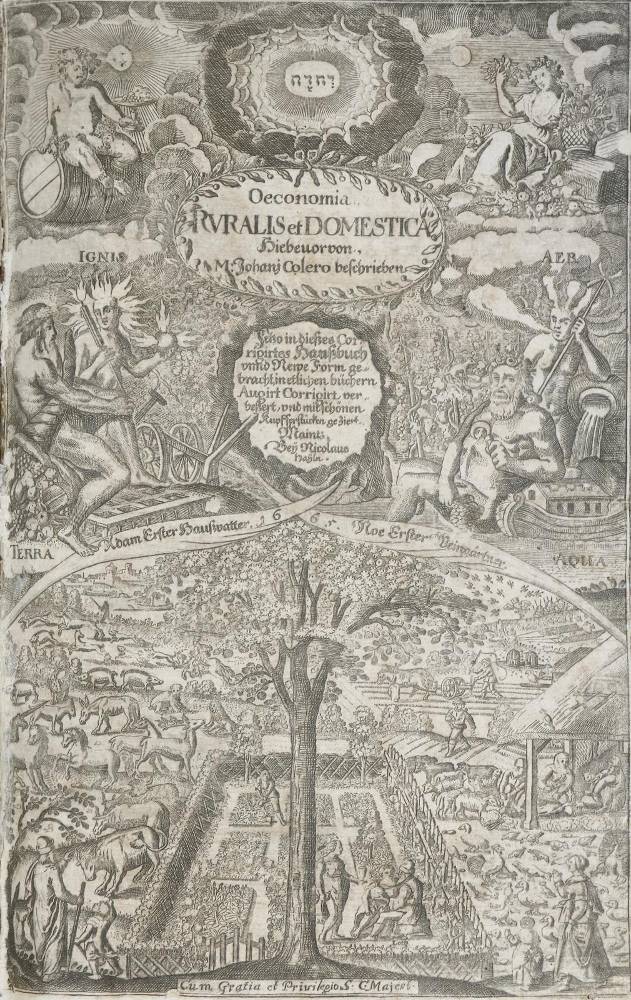 יהוה
Oeconomia
RVRALIS et DOMESTICA
Hiebeuor von
M: Johanj Colero beschrieben
IGNIS
AER
Jetzo in dießes Cor-
rigirtes Haußbuch
vnnd Newe Form ge-
bracht, in etlichen büchern
Augirt Corrigirt ver-
bessert, vnd mit schönen
Kupfferstucken geziert.
Maintz
Beÿ Nicolaus
TERRA
Adam Erster Haußvatter. 1665. Noe Erster Weingärtner
AQUA
Cum Gratia et Privilegio S. C. Majest.